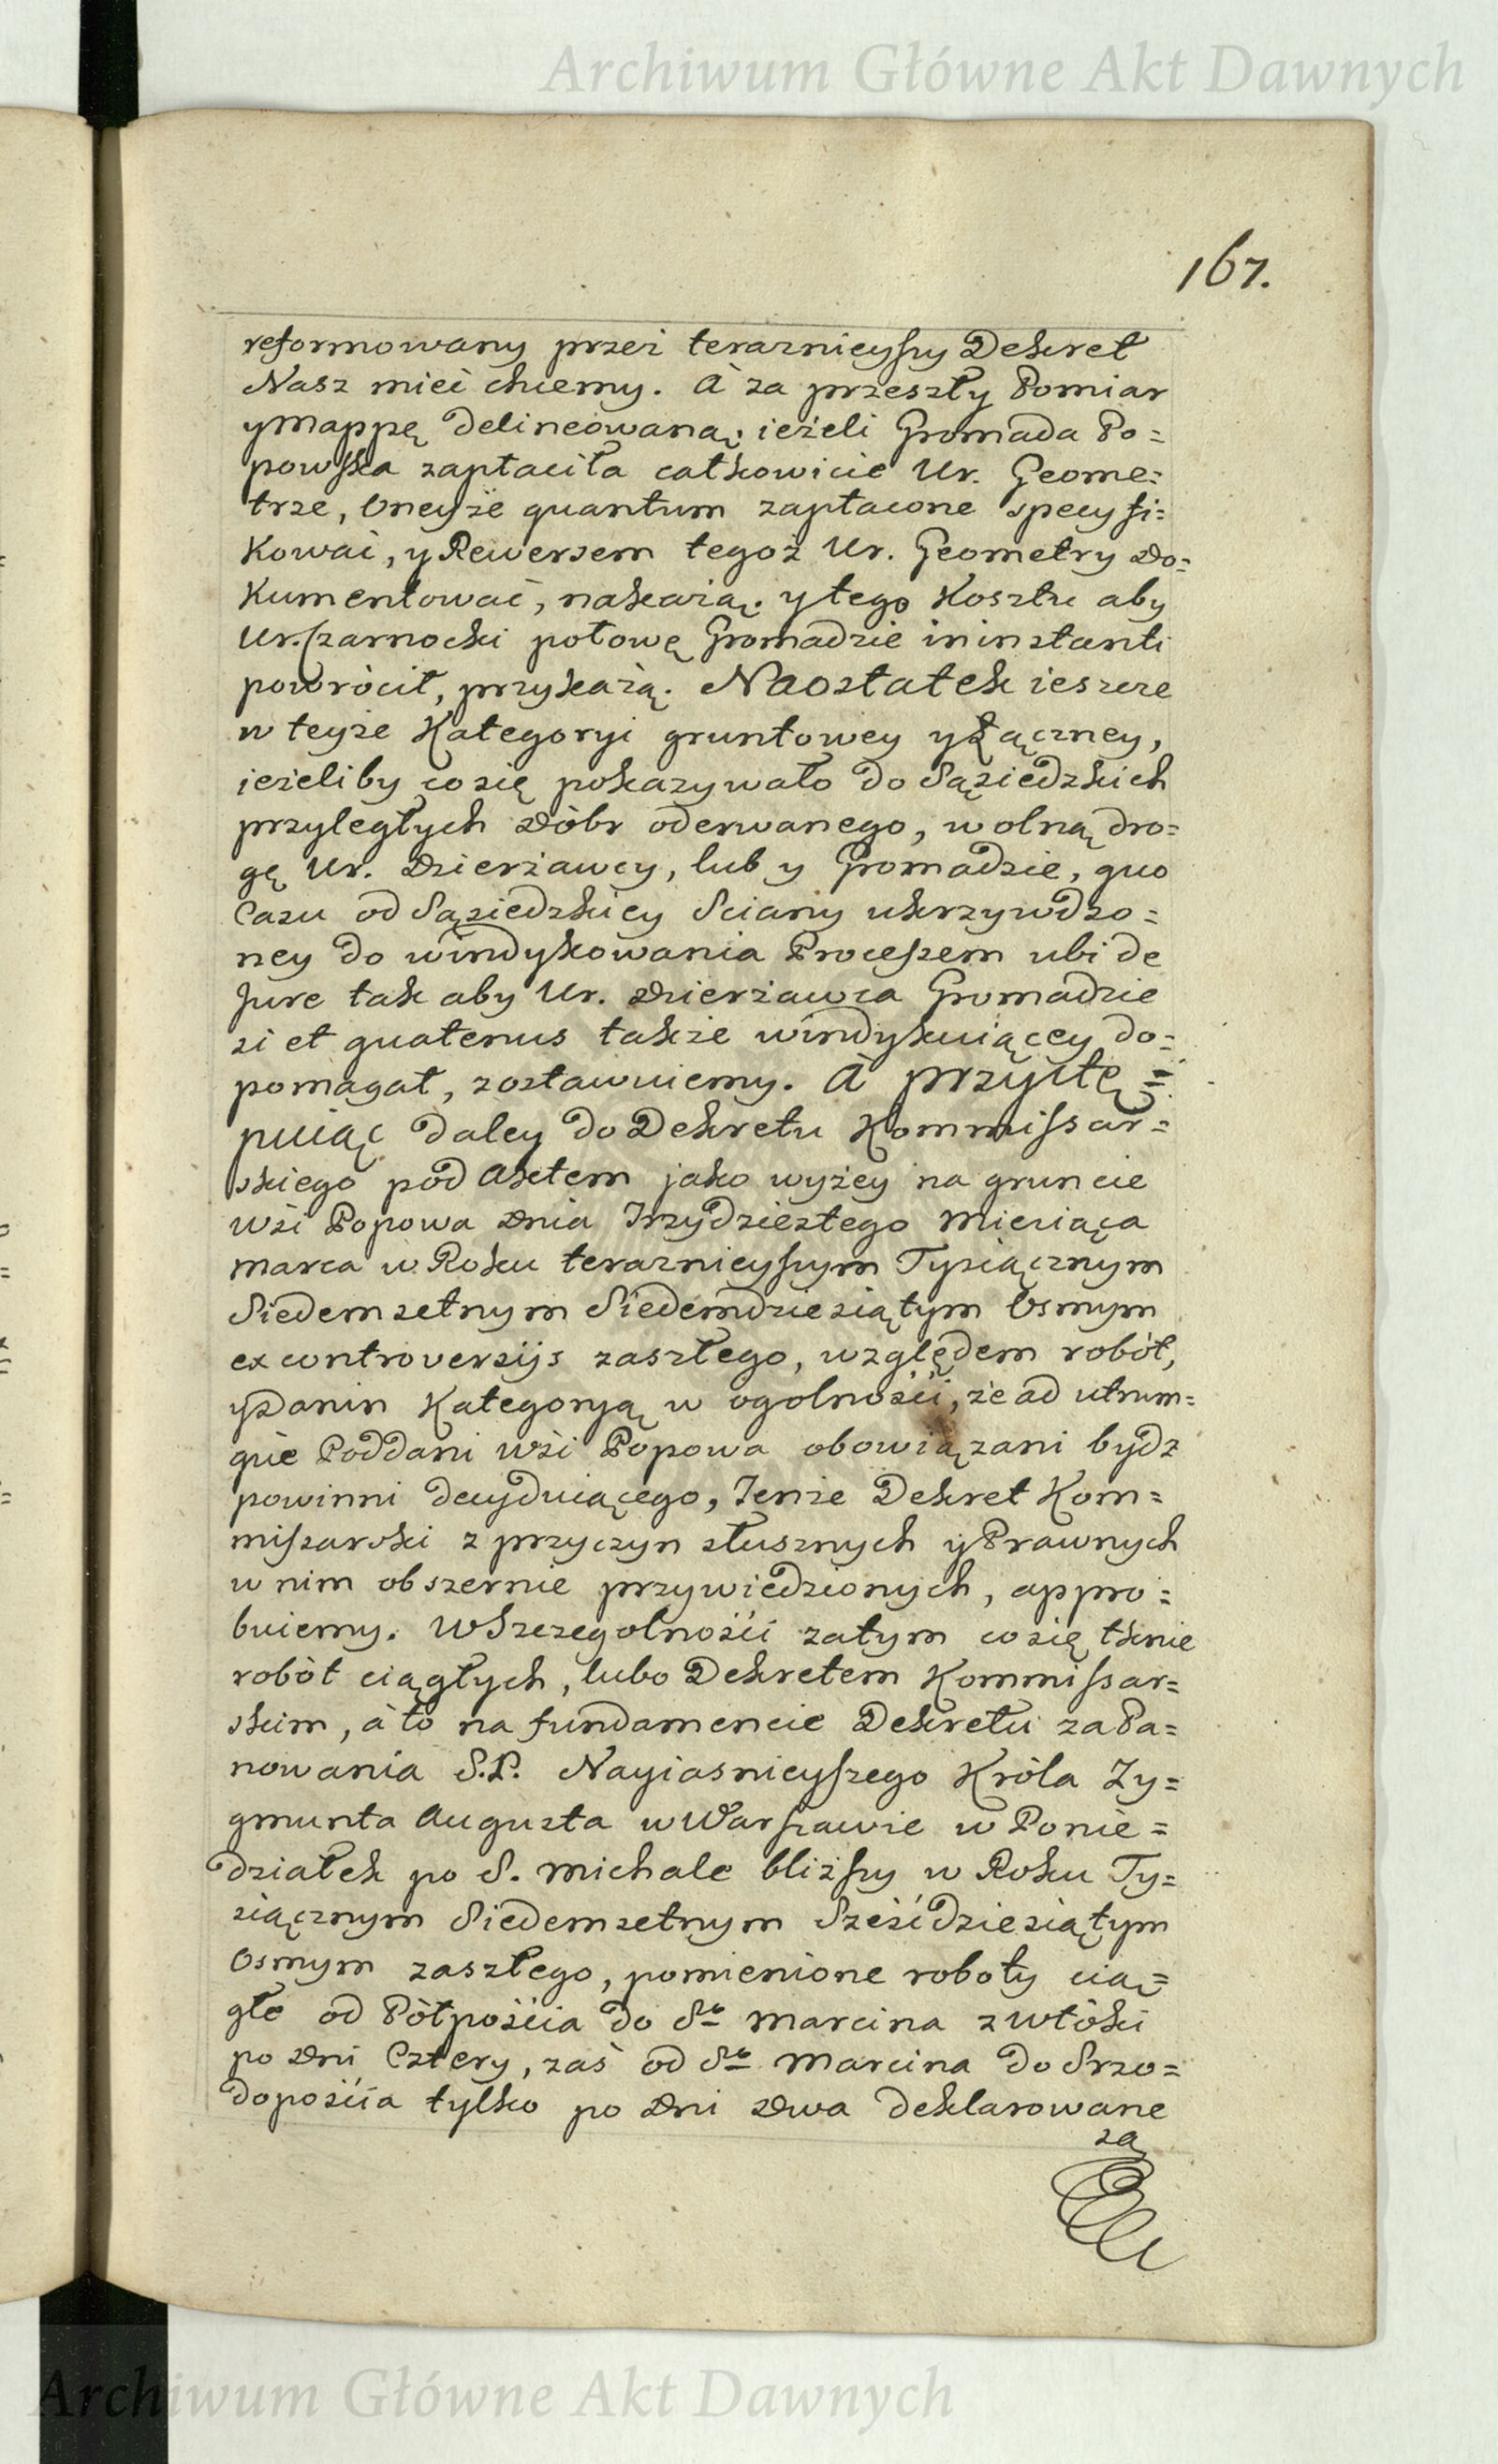 Archiwum Główne Akt Dawnych
167.
reformowany przez terarznieyszy Dekret
Nasz mieć chcemy. A za przeszły Pomiar
y Mappę delineowaną, ieżeli Gromada Po=
powska zapłaciła całkowicie Ur. Geome=
trze, Oneyże quantum zapłacone specyfi=
kować, y Rewersem tegoż Ur. Geometry Do=
kumentować, nakażą. y tego Kosztu aby
Ur. Czarnocki połowę Gromadzie in instanti
powrócił, przykażą. Naostatek ieszcze
w teyże Kategoryi gruntowey y Łączney,
ieżeliby co się pokazywało do Sąsiedzkich
przyległych Dóbr oderwanego, wolną dro=
gę Ur. Dzierżawcy, lub y Gromadzie, quo
Casu od Sąsiedzkiey Sciany ukrzywdzo=
ney do windykowania Processem ubi de
Jure tak aby Ur. Dzierżawca Gromadzie
si et quatenus także windykuiącey do=
pomagał, zostawuiemy. A przystę=
puiąc daley do Dekretu Kommissar=
skiego pod Aktem jako wyżey na gruncie
Wsi Popowa Dnia Trzydziestego Miesiąca
Marca w Roku terarznieyszym Tysiącznym
Siedemsetnym Siedemdziesiątym Osmym
ex controversijs zaszłego, względem robót,
y Danin Kategoryą w ogolności, że ad utrum=
que Poddani Wsi Popowa obowiązani bydz
powinni decyduiącego, Tenże Dekret Kom=
missarski z przyczyn słusznych y Prawnych
w nim obszernie przywiedzionych, appro=
buiemy. W Szczegolności zatym co się tknie
robót ciągłych, lubo Dekretem Kommissar=
skim, á to na fundamencie Dekretu za Pa=
nowania S.P. Nayiasnieyszego Króla Zy=
gmunta Augusta w Warszawie w Ponie=
działek po S. Michale bliższy w Roku Ty=
siącznym Siedemsetnym Sześćdziesiątym
Osmym zaszłego, pomienione roboty cią=
głe od Półpościa do Sgo Marcina z Włóki
po Dni Cztery, zaś od Sgo Marcina do Srzo=
dopościa tylko po Dni Dwa deklarowane
są
Archiwum Główne Akt Dawnych